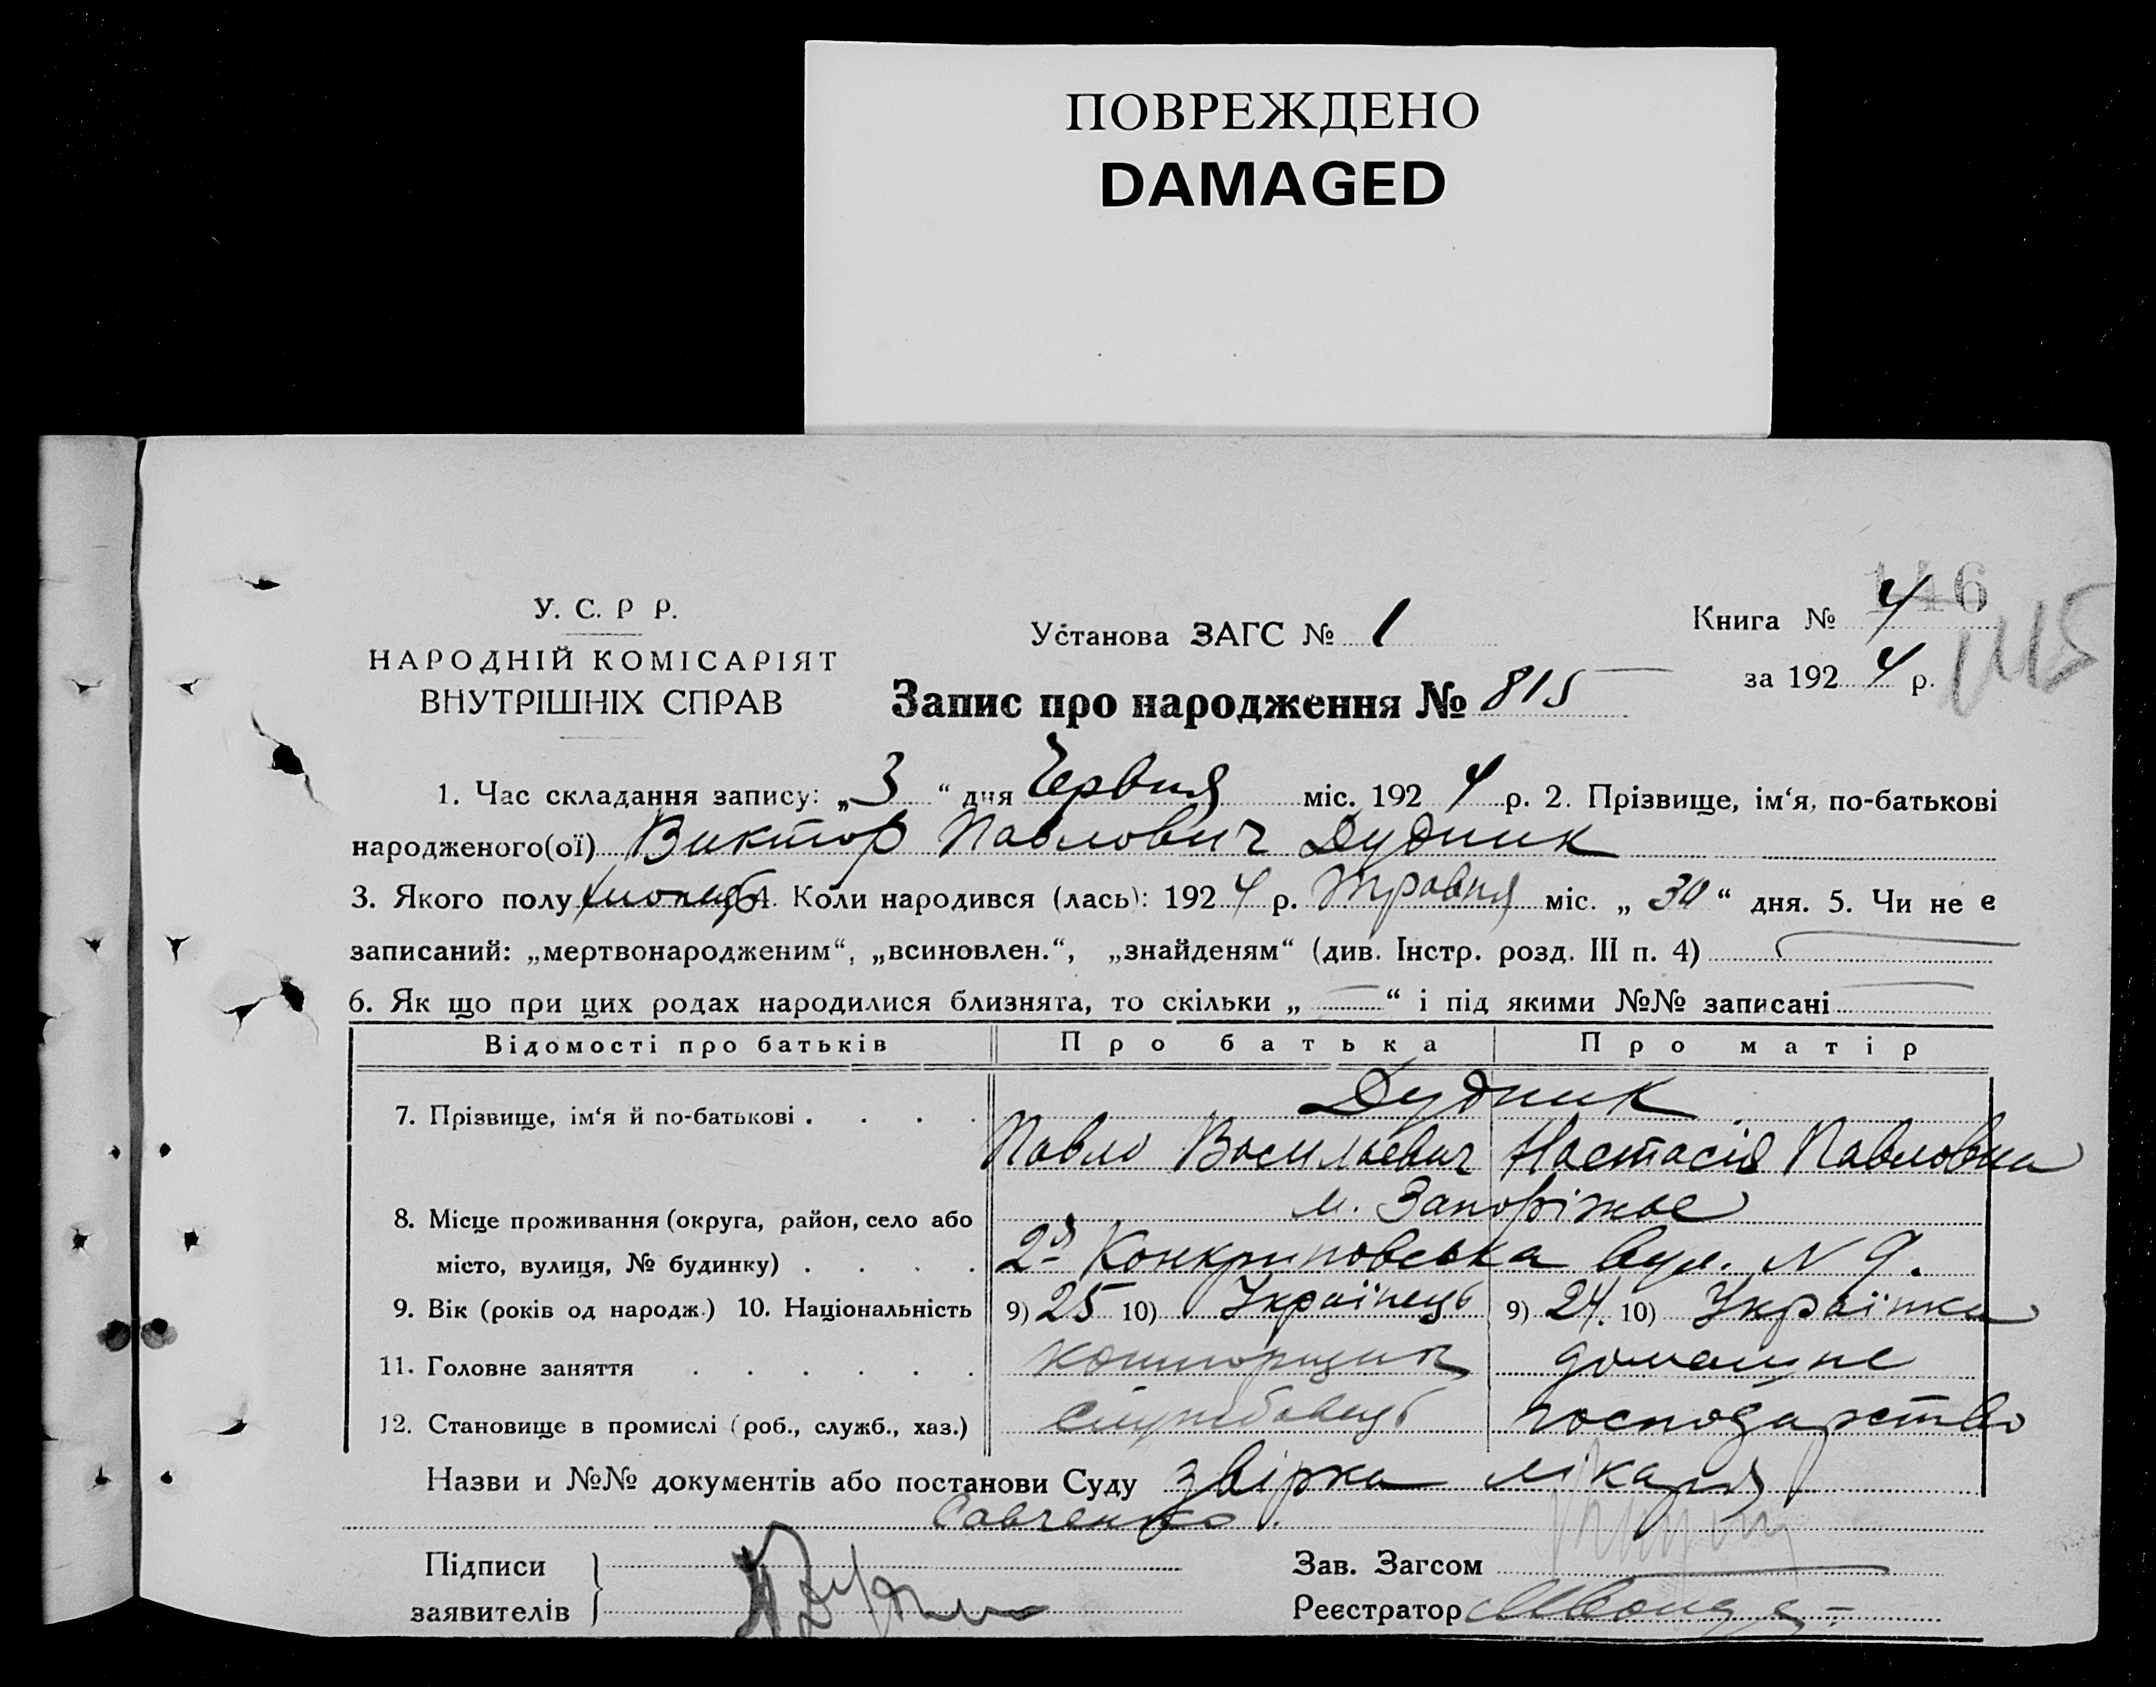 ПОВРЕЖДЕНО
DAMAGED
146
115
У. С. Р Р.
НАРОДНІЙ КОМІСАРІЯТ
ВНУТРІШНІХ СПРАВ
Установа ЗАГС № 1
Книга № 4
за 192 4 р.
Запис про народження № 815
1. Час складання запису: „ 3 “ дня Червня міс. 192 4 р. 2. Прізвище, ім‘я, по-батькові
народженого(ої) Виктор Павлович Дудник
3. Якого полу хлопець 4. Коли народився (лась): 192 4 р. травня міс. „ 30 “ дня. 5. Чи не є
записаний: „мертвонародженим“, „всиновлен.“, „знайденям“ (див. Інстр. розд. III п. 4)
6. Як що при цих родах народилися близнята, то скільки „ — “ і під якими №№ записані —
Відомості про батьків Про батька Про матір
7. Прізвище, ім‘я й по-батькові . . . . Дудник
Павло Васильевич Настасія Павловна
8. Місце проживання (округа, район, село або м. Запоріжье
місто, вулиця, № будинку) . . . . 2я вул. N 9.
9. Вік (років од народж.) 10. Національність 9) 25 10) Українець 9) 24. 10) Українка
11. Головне заняття . . . . . . конторщик домашне
12. Становище в промислі (роб., служб., хаз.) службовець господарство
Назви и №№ документів або постанови Суду звірка лікаря
Савченко.
Підписи
заявителів
Зав. Загсом
Реєстратор